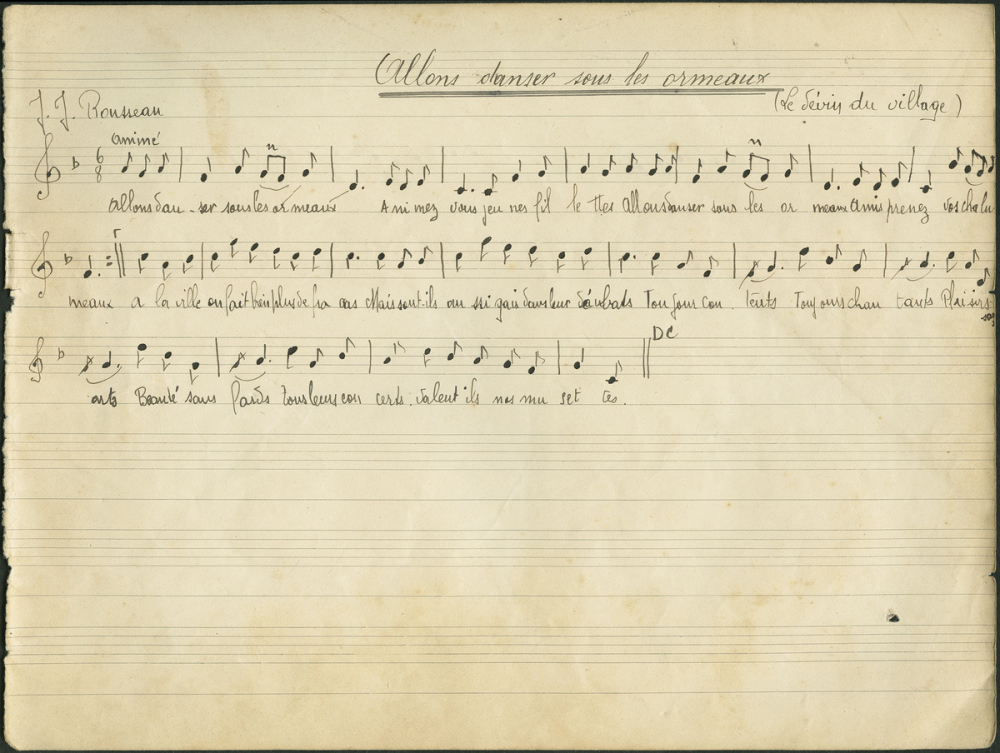 Allons danser sous les ormeaux
J. J. Rousseau
(Le dévin du village)
Animé
Allons dan - ser sous les or meaux A ni mez vous jeu nes fil le ttes Allons danser sous les or meaux Amis prenez vos chalu
meaux a la ville on fait bein plus de fra cas Mais sont-ils au ssi gais dans leur ébats Tou jours con . tents Toujours chan tants Plaisirs
arts Beauté sans fards Tous leurs con certs . valent ils nos mu set tes.
DC